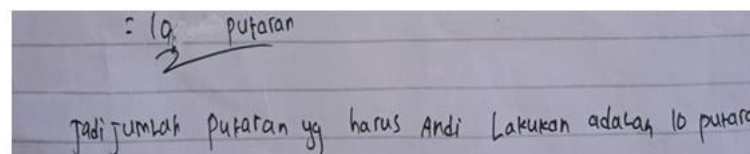 = 10 putaran
Jadi jumlah putaran yg harus Andi Lakukan adalah 10 putara